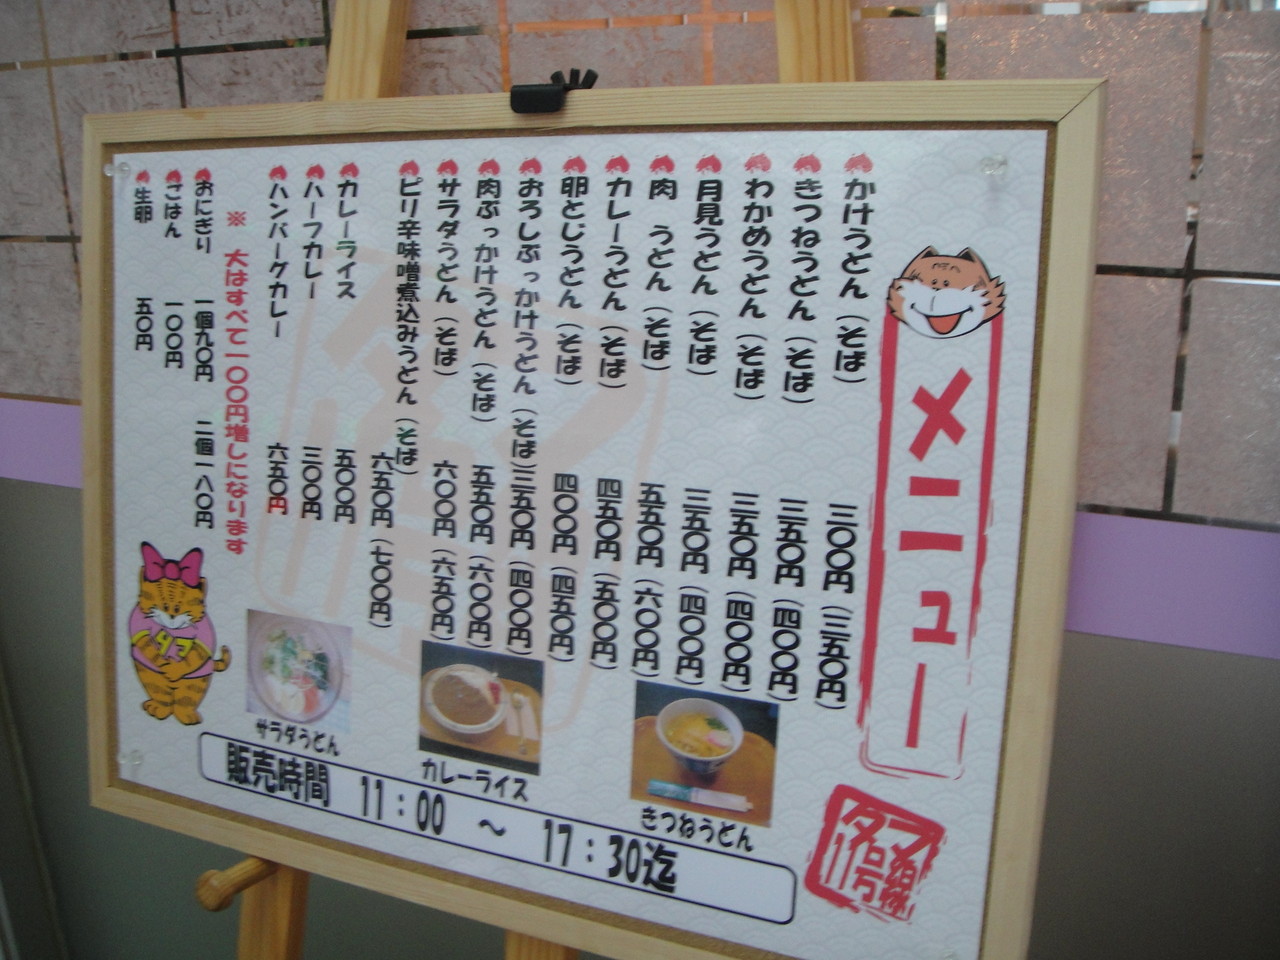 メニュー
かけうどん（そば） 三〇〇円（三五〇円）
きつねうどん（そば） 三五〇円（四〇〇円）
わかめうどん（そば） 三五〇円（四〇〇円）
月見うどん（そば） 三五〇円（四〇〇円）
肉 うどん（そば） 五五〇円（六〇〇円）
カレーうどん（そば） 四五〇円（五〇〇円）
卵とじうどん（そば） 四〇〇円（四五〇円）
おろしぶっかけうどん（そば） 三五〇円（四〇〇円）
肉ぶっかけうどん（そば） 五五〇円（六〇〇円）
サラダうどん（そば） 六〇〇円（六五〇円）
ピリ辛味噌煮込みうどん（そば） 六五〇円（七〇〇円）
カレーライス 五〇〇円
ハーフカレー 三〇〇円
ハンバーグカレー 六五〇円
※ 大はすべて一〇〇円増しになります
おにぎり 一個九〇円 二個一八〇円
ごはん 一〇〇円
生卵 五〇円
サラダうどん
カレーライス
きつねうどん
販売時間 11：00 ～ 17：30迄
タフ